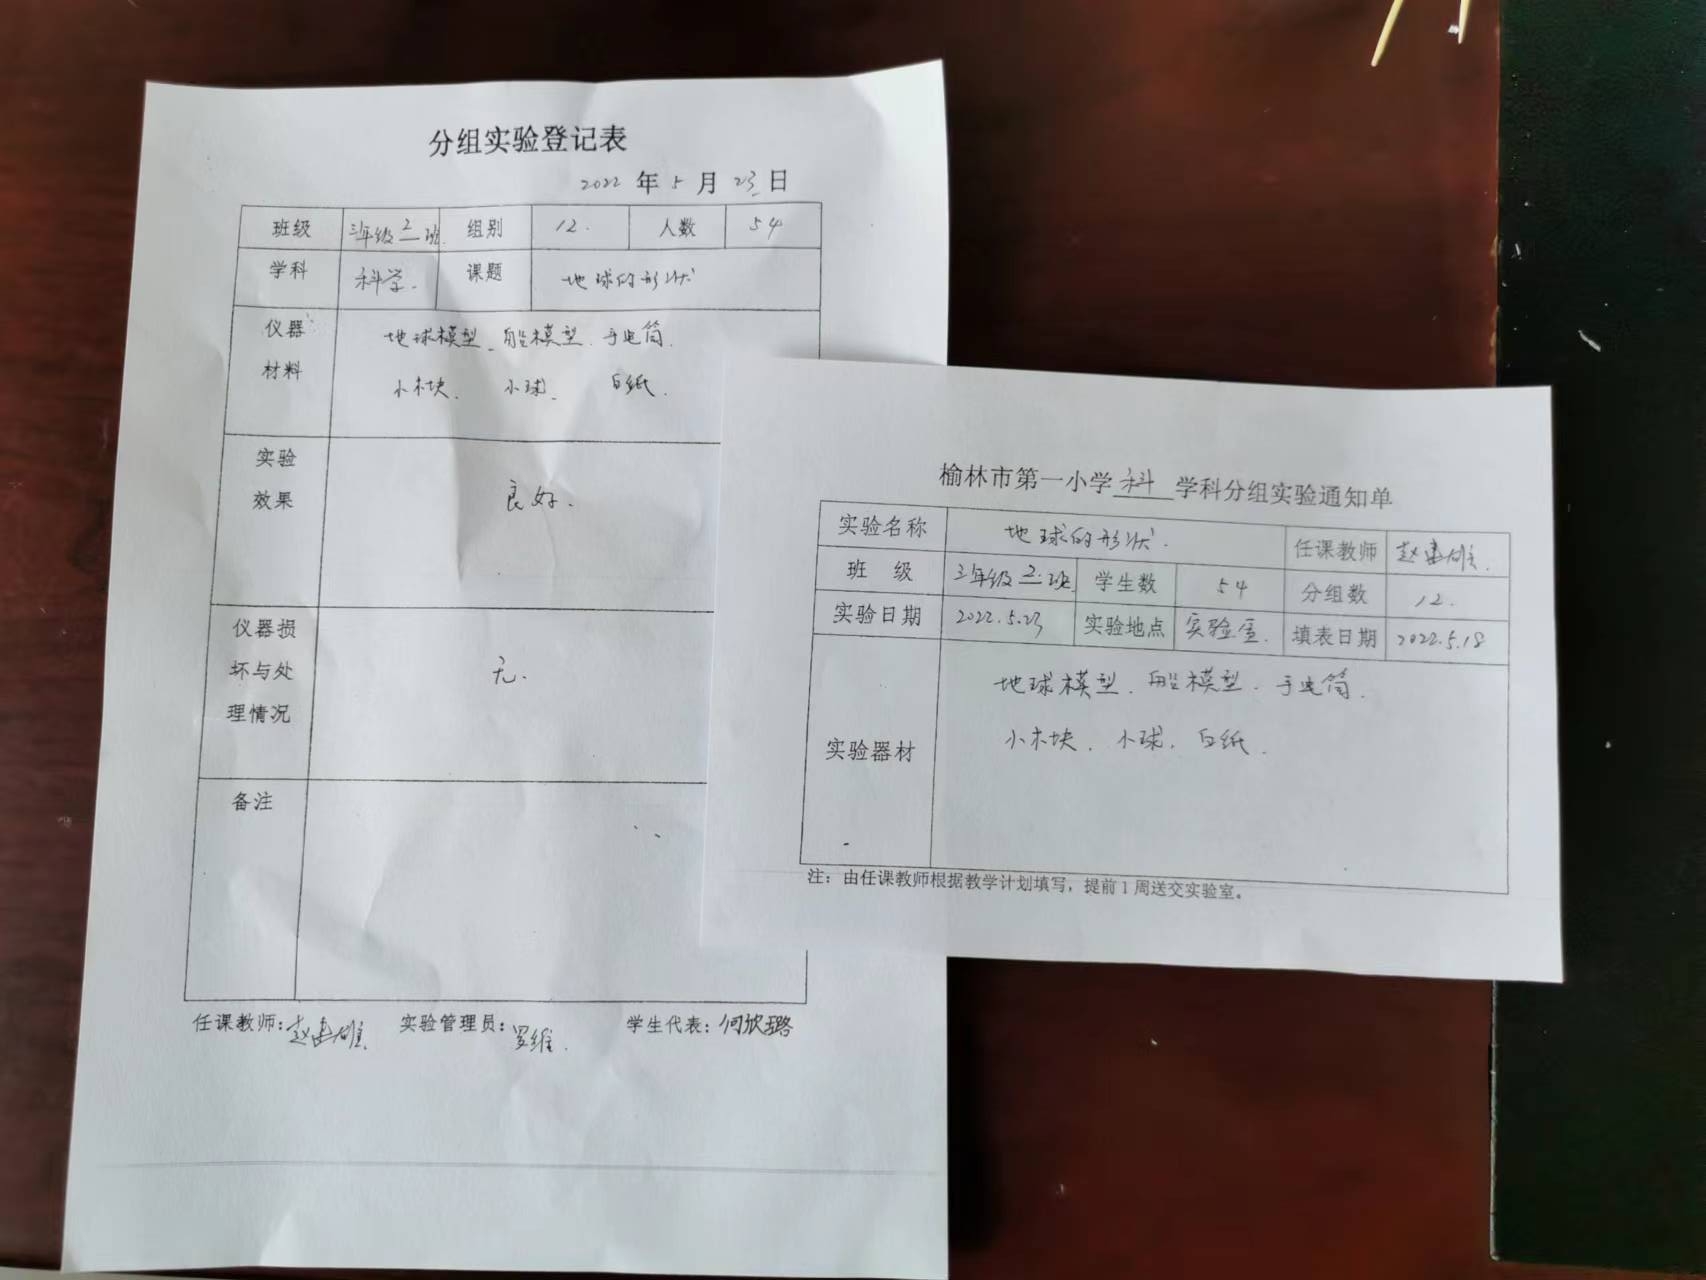 分组实验登记表
2022 年 5 月 23 日
班级 三年级 2 班 组别 12. 人数 54
学科 科学. 课题 地球的形状
仪器材料 地球模型、船模型、手电筒.
小木块、 小球、 白纸.
实验效果 良好.
仪器损坏与处理情况 无.
备注
任课教师:赵建雄. 实验管理员:罗维. 学生代表:何欣璐
榆林市第一小学 科 学科分组实验通知单
实验名称 地球的形状. 任课教师 赵建雄.
班 级 三年级 2. 班 学生数 54 分组数 12.
实验日期 2022.5.23 实验地点 实验室. 填表日期 2022.5.18
实验器材 地球模型、船模型、手电筒.
小木块、小球、白纸.
注：由任课教师根据教学计划填写，提前1周送交实验室。